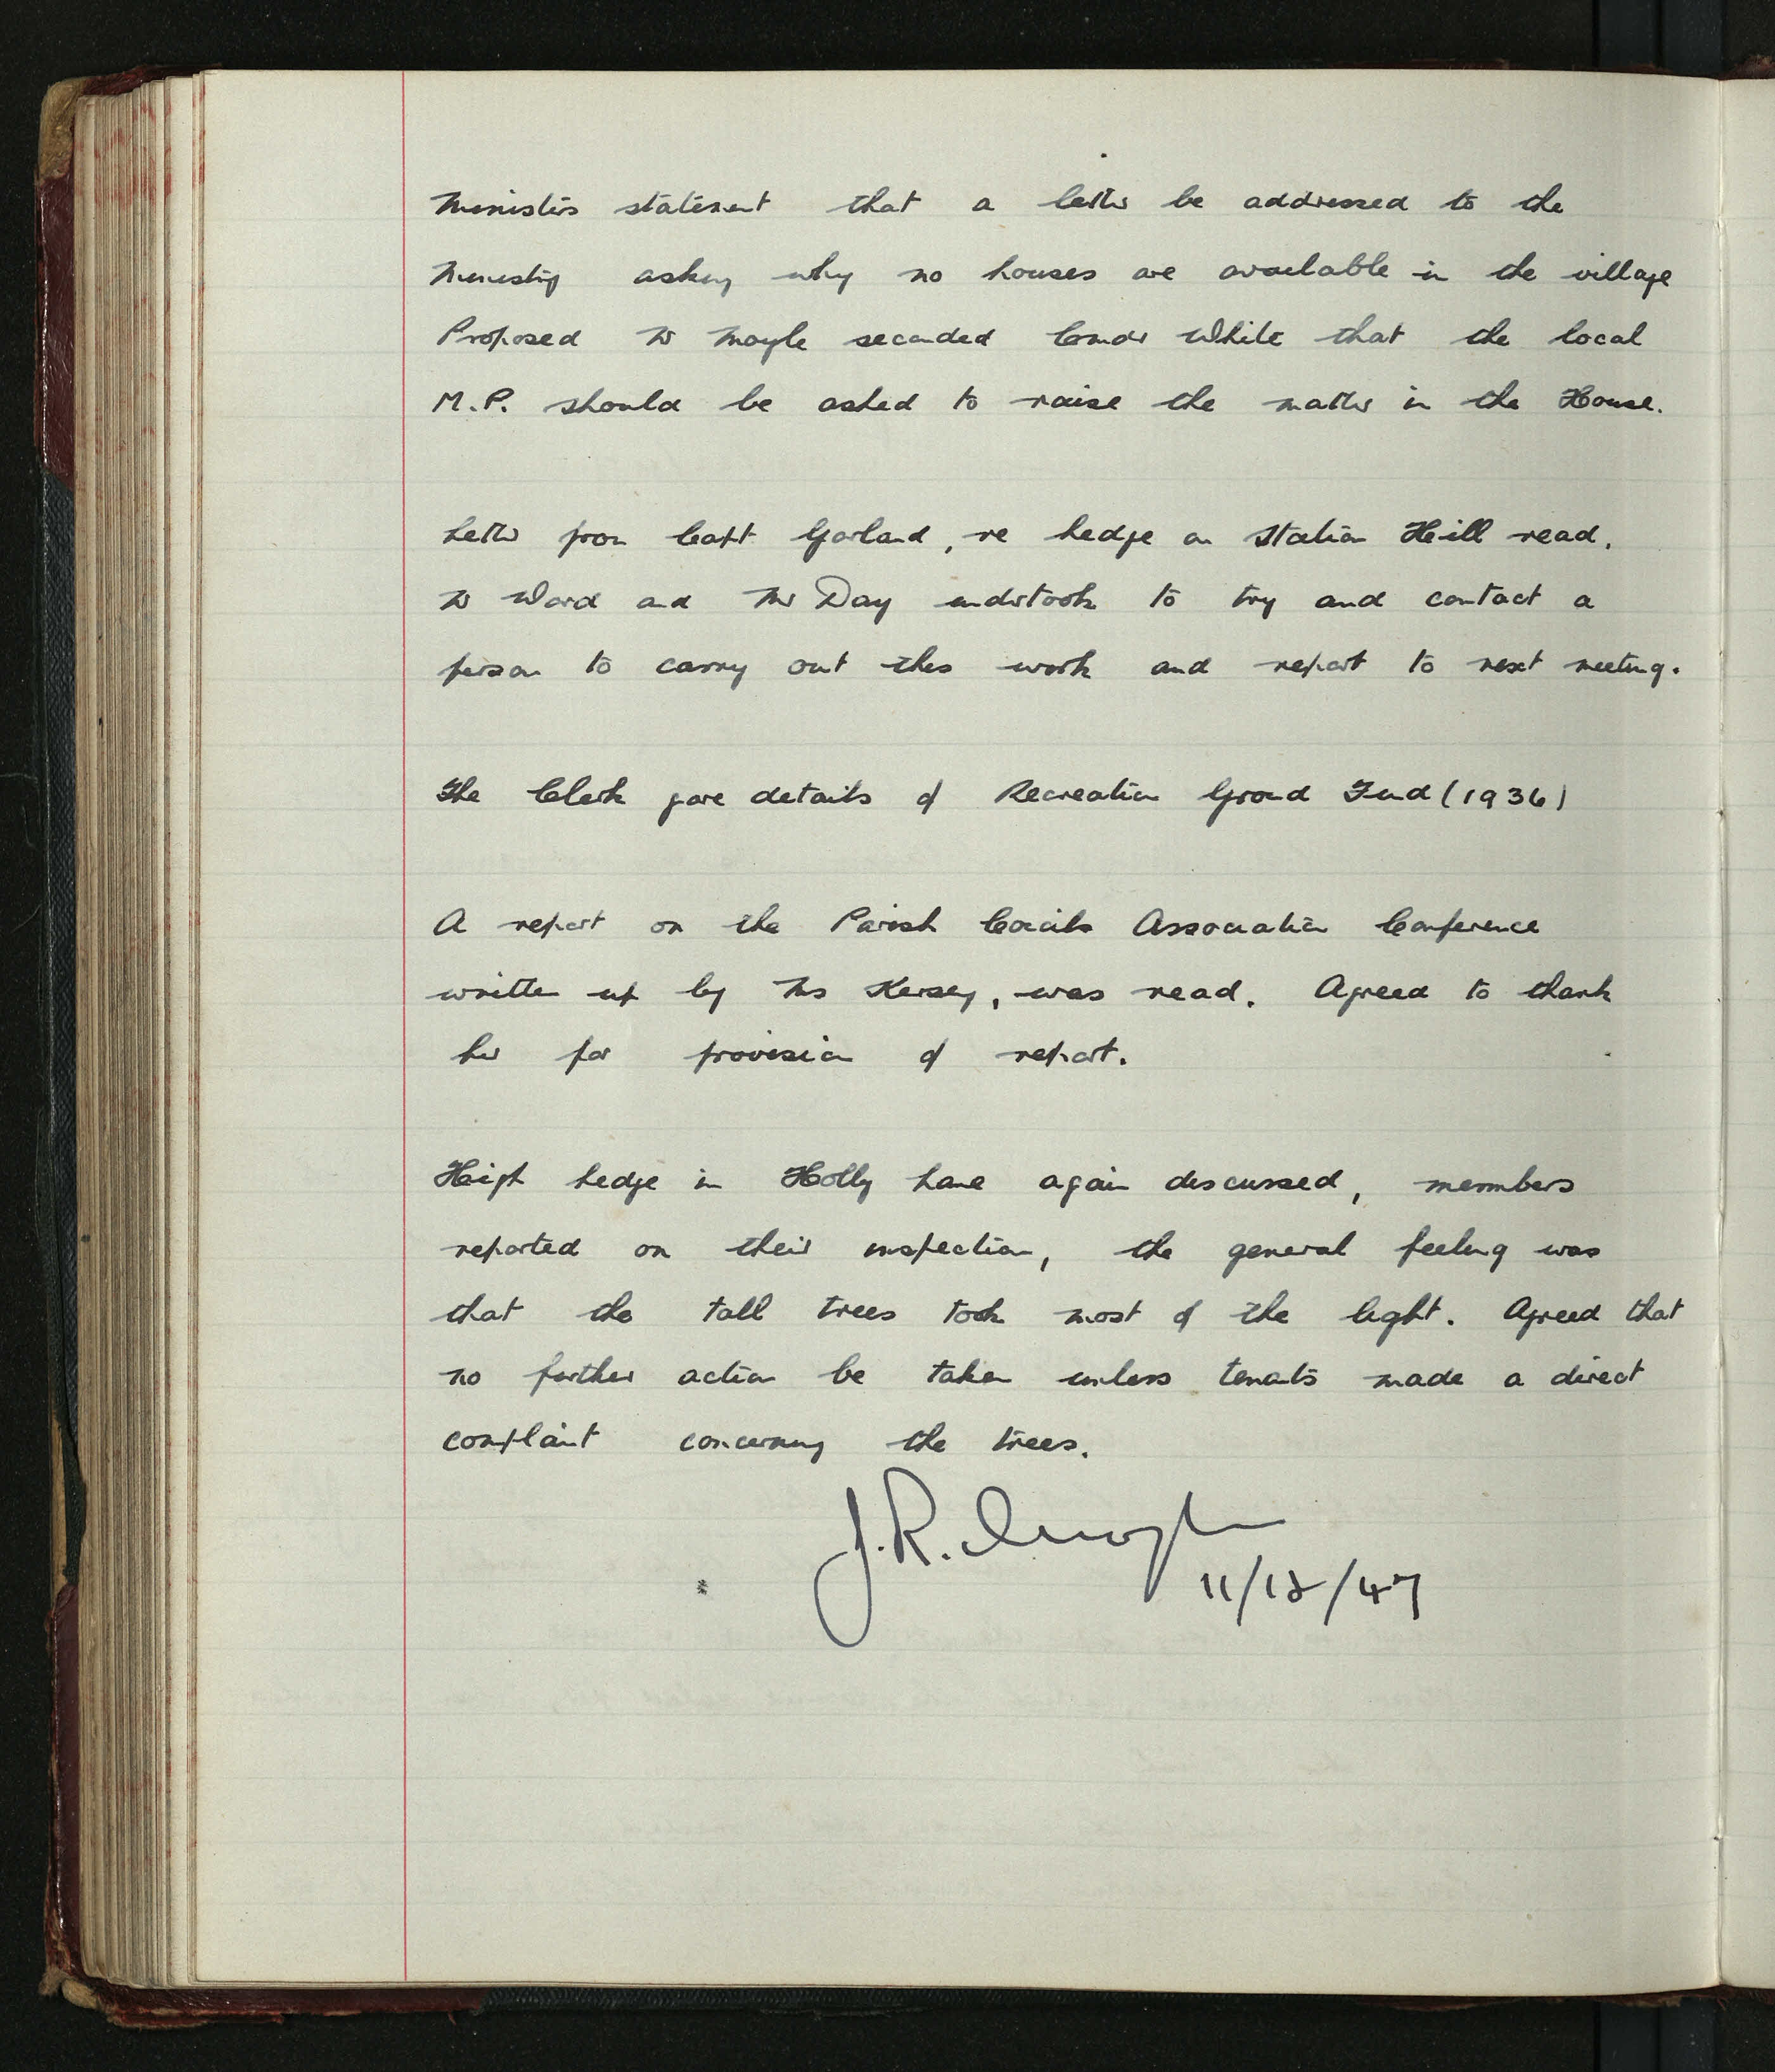 Ministers statement that a letter be addressed to the
Ministry asking why no houses are available in the village
Proposed Mr Mayle seconded Comdr White that the local
M.P. should be asked to raise the matter in the House.
Letter from Capt Garland, re hedge on Station Hill read.
Mr Ward and Mr Day undertook to try and contact a
person to carry out this work and report to next meeting.
The Clerk gave details of Recreation Ground Fund (1936)
A report on the Parish Councils Association Conference
written up by Mrs Kersey, was read. Agreed to thank
her for provision of report.
High hedge in Holly Lane again discussed, members
reported on their inspection, the general feeling was
that the tall trees took most of the light. Agreed that
no further action be taken unless tenants made a direct
complaint concerning the trees.
J.R.
11/12/47